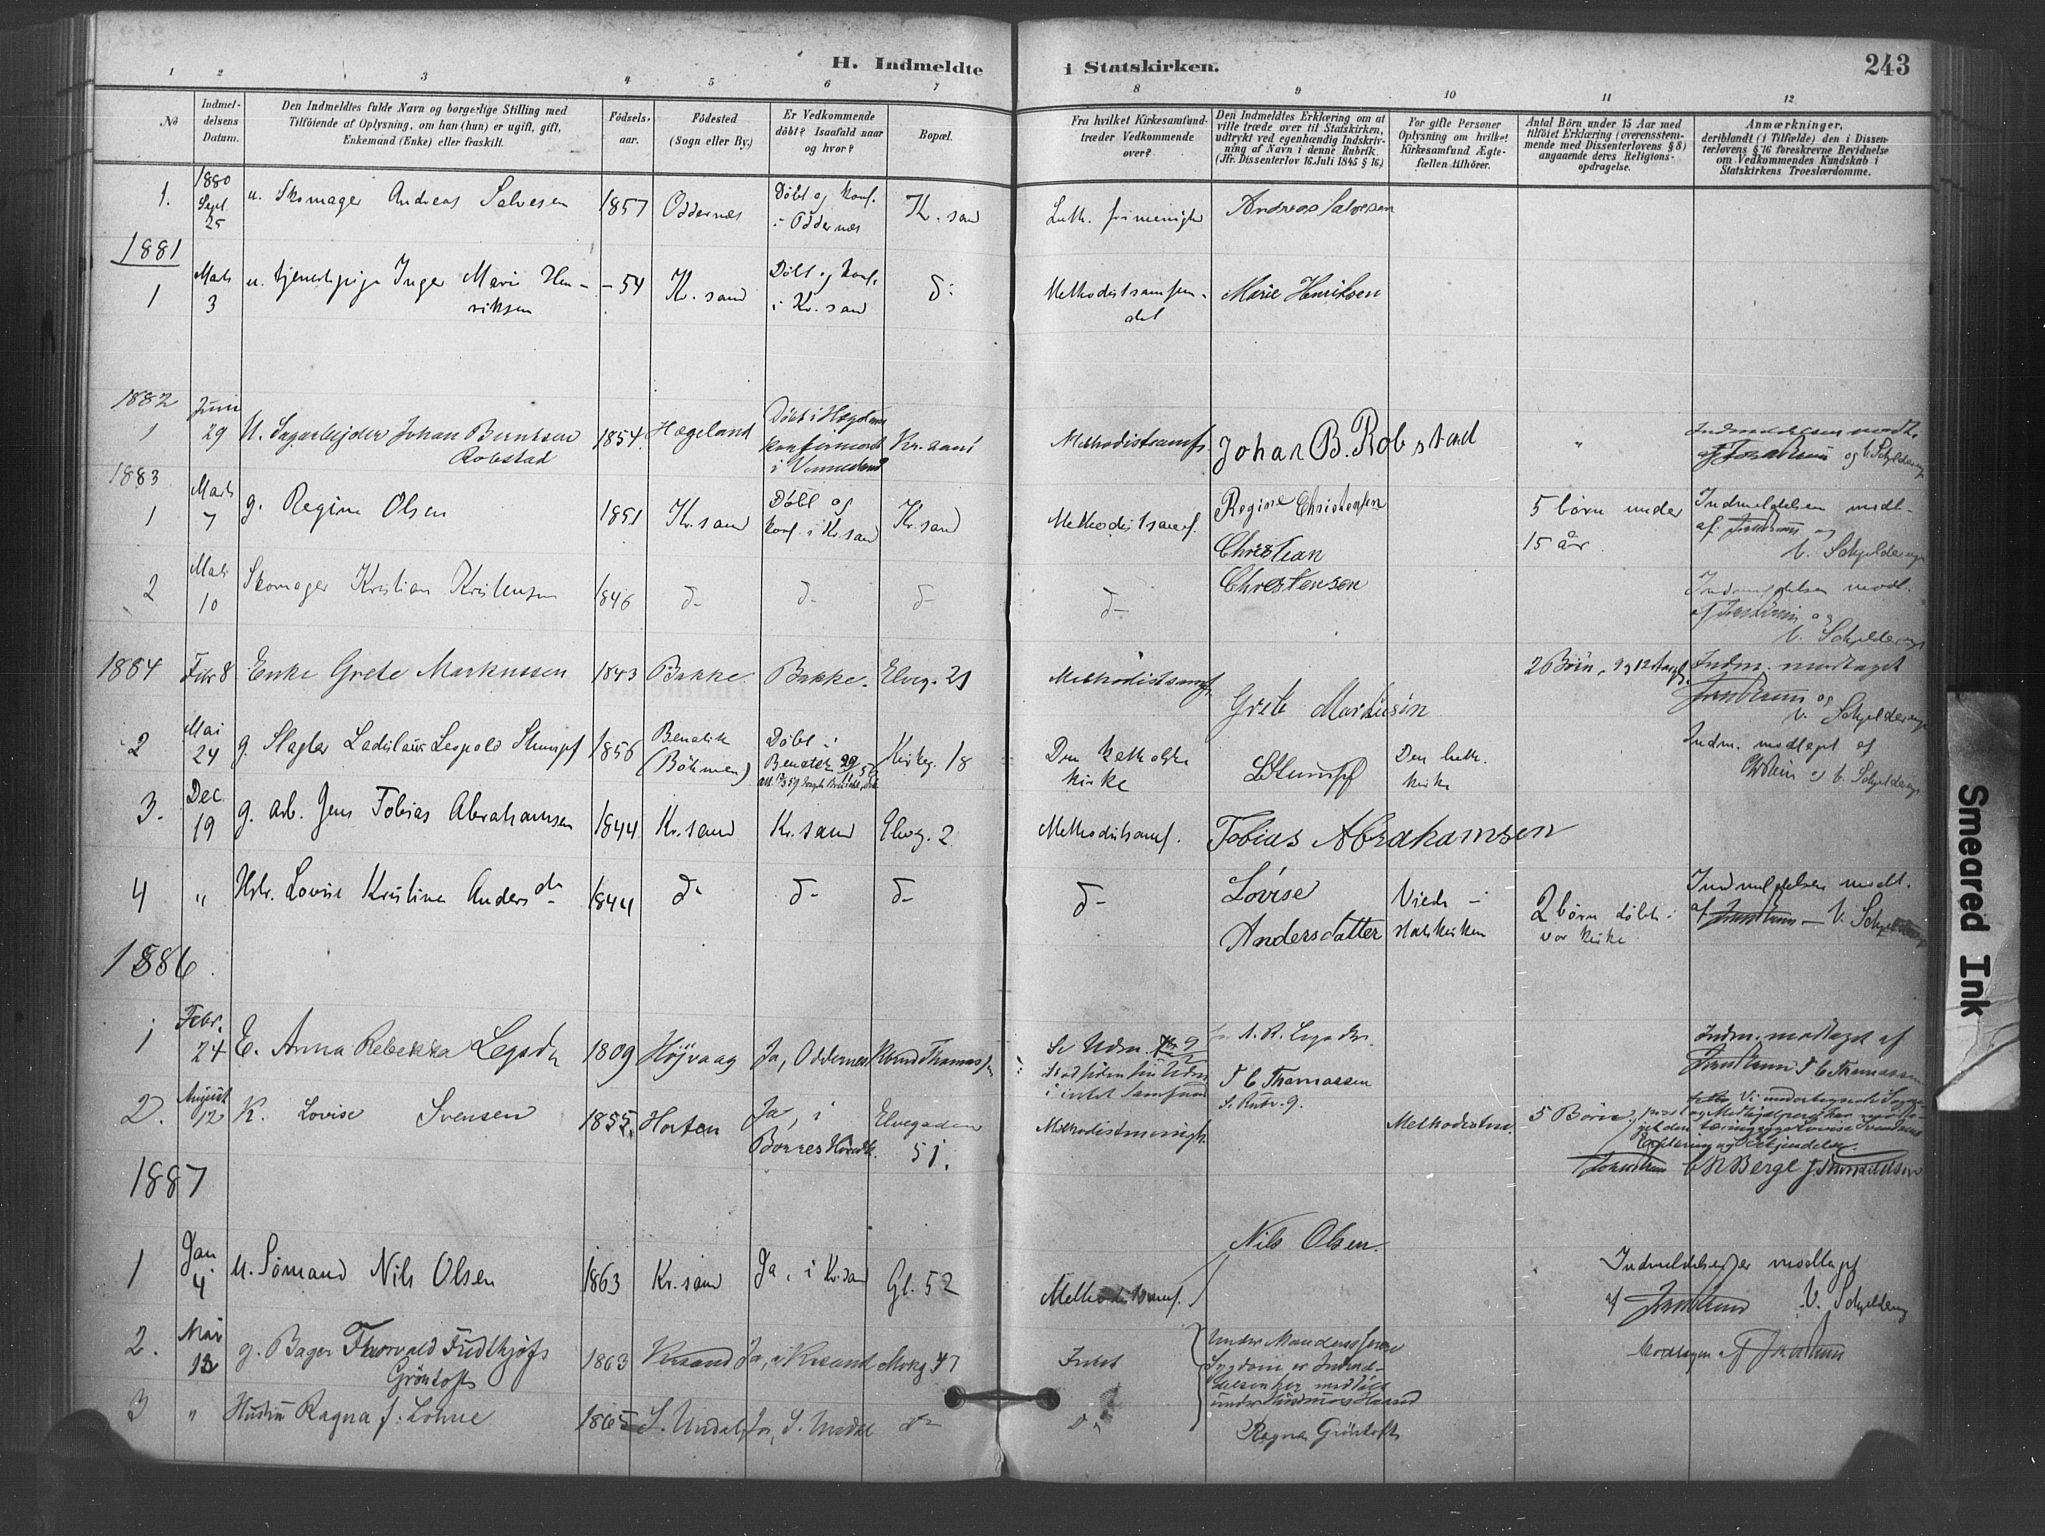 H. Indmeldte i Statskirken.
243
1 2 3 4 5 6 7 8 9 10 11 12
No
Indmel-
delsens
Datum.
Den Indmeldtes fulde Navn og borgerlige Stilling med
Tilföiende af Oplysning, om han (hun) er ugift, gift,
Enkemand (Enke) eller fraskilt.
Födsels-
aar.
Födested
(Sogn eller By.)
Er Vedkommende
döbt? Isaafald naar
og hvor?
Bopæl.
Fra hvilket Kirkesamfund
træder Vedkommende
over?
Den Indmeldtes Erklæring om at
ville træde over til Statskirken,
udtrykt ved egenhændig Indskriv-
ning af Navn i denne Rubrik.
(Jfr. Dissenterlov 16. Juli 1845 § 16.)
For gifte Personer
Oplysning om hvilket
Kirkesamfund Ægte-
fællen tilhörer.
Antal Börn under 15 Aar med
tilföiet Erklæring (overensstem-
mende med Dissenterlovens § 8)
angaaende deres Religions-
opdragelse.
Anmærkninger,
deriblandt (i Tilfælde) den i Dissen-
terlovens § 16 foreskrevne Bevidnelse
om Vedkommendes Kundskab i
Statskirkens Troeslærdomme.
1. 1880 Sept 25 u. Skomager Andreas Salvesen 1857 Oddernæs Döbt og konf. i Oddernæs Kr. sand Luth. frimenigh Andreas Salvesen
1881
1 Marts 3 u. tjenestpige Inger Marie Hen-
riksen - 54 Kr. sand Döbt og konf. i Kr. sand d: Methodistsamfun-
det Marie Henriksen
1882
1 Juni 29 U. Sagarbejder Johan Berntsen
Robstad 1854. Hægeland Döbt i Hægeland konfirmeret i Vennesland Kr. sand Methodistsamfs. Johan B. Robstad " Indmeldelsen modt.
af og V. Schjelderup
1883
1 Marts 7 g. Regine Olsen 1851 Kr. sand Döbt og konf. i Kr. sand Kr. sand Methodistsamf. Regine Christensen 5 børn under
15 år. Indmeldelsen modt.
af og
V. Schjelderup
2 Marts 10 Skomager Kristian Kristensen 1846 d- d- d- d- Christian
Christensen Indmeldelsen modt.
af og
V. Schjelderup
1884 Febr 8 Enke Grete Markussen 1843 Bakke. Bakke. Elveg. 21 Methodistsamf. Grete Markusen 2 Börn, 9 og 12 Aar gl. Indm. modtaget
og
V. Schjelderup
2 Mai 24 g. Slagter Ladislaus Leopold Stumpf 1856 Benatek
(Böhmen) Döbt i
Benatek Kirkeg. 18 Den katholske
kirke LStumpf Den luth.
kirke Indm. modtaget af
og V. Schjelderup
3. Dec. 19 g. arb. Jens Tobias Abrahamsen 1844 Kr. sand Kr. sand Elveg. 2 Methodistsamf. Tobias Abrahamsen
4 " Hstr. Lovise Kristine Andersdr 1844 d- d- d- d- Lovise
Andersdatter
statskirken 2 börn döbte i
vor kirke Indmeldelsen modt.
af V. Schjelderup
1886.
1 Febr. 24 E. Anna Rebekka Legsdr 1809 Höjvaag Ja, Oddernes Knud Thomassen Se Udm. No 9
i intet Samfund A. R. Legsdr.
T C Thomassen
S. Rubr. 9. Indm. modtaget af
T C Thomassen
2. August 12 K. Lovise Svensen 1855. Horten Ja, i
Borres Elvegaden
51. Methodistmenigh. Methodistm. 5 Börn, Vi undertegnede
Erklæring og
C N Berge
1887
1 Jan. 4 U. Sömand Nils Olsen 1863 Kr. sand Ja, i Kr. sand Gl. 52 Methodistsamf. Nils Olsen. Indmeldelsen er modtaget
af V. Schjelderup
2. Mai 12 g. Bager Thorvald Fridthjofs
Gröntoft 1863 Krsand Ja, i Krsand 47 Intet Under Mandens svære
Sygdom er Indmel-
delsen modtaget
under Modtagen af
3 " Hustru Ragna f. Lohne 1865 S. Undal Ja, S. Undal d- d- Ragna Gröntoft
Smeared Ink